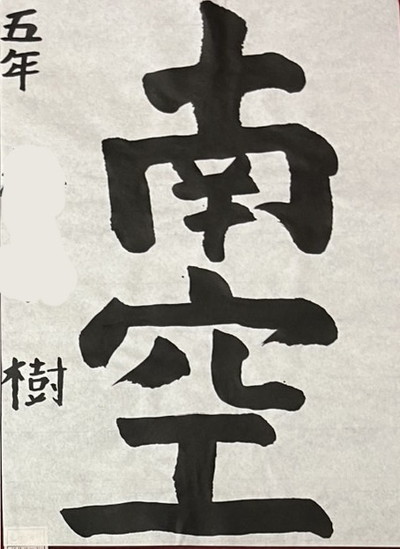 南空
五年
樹